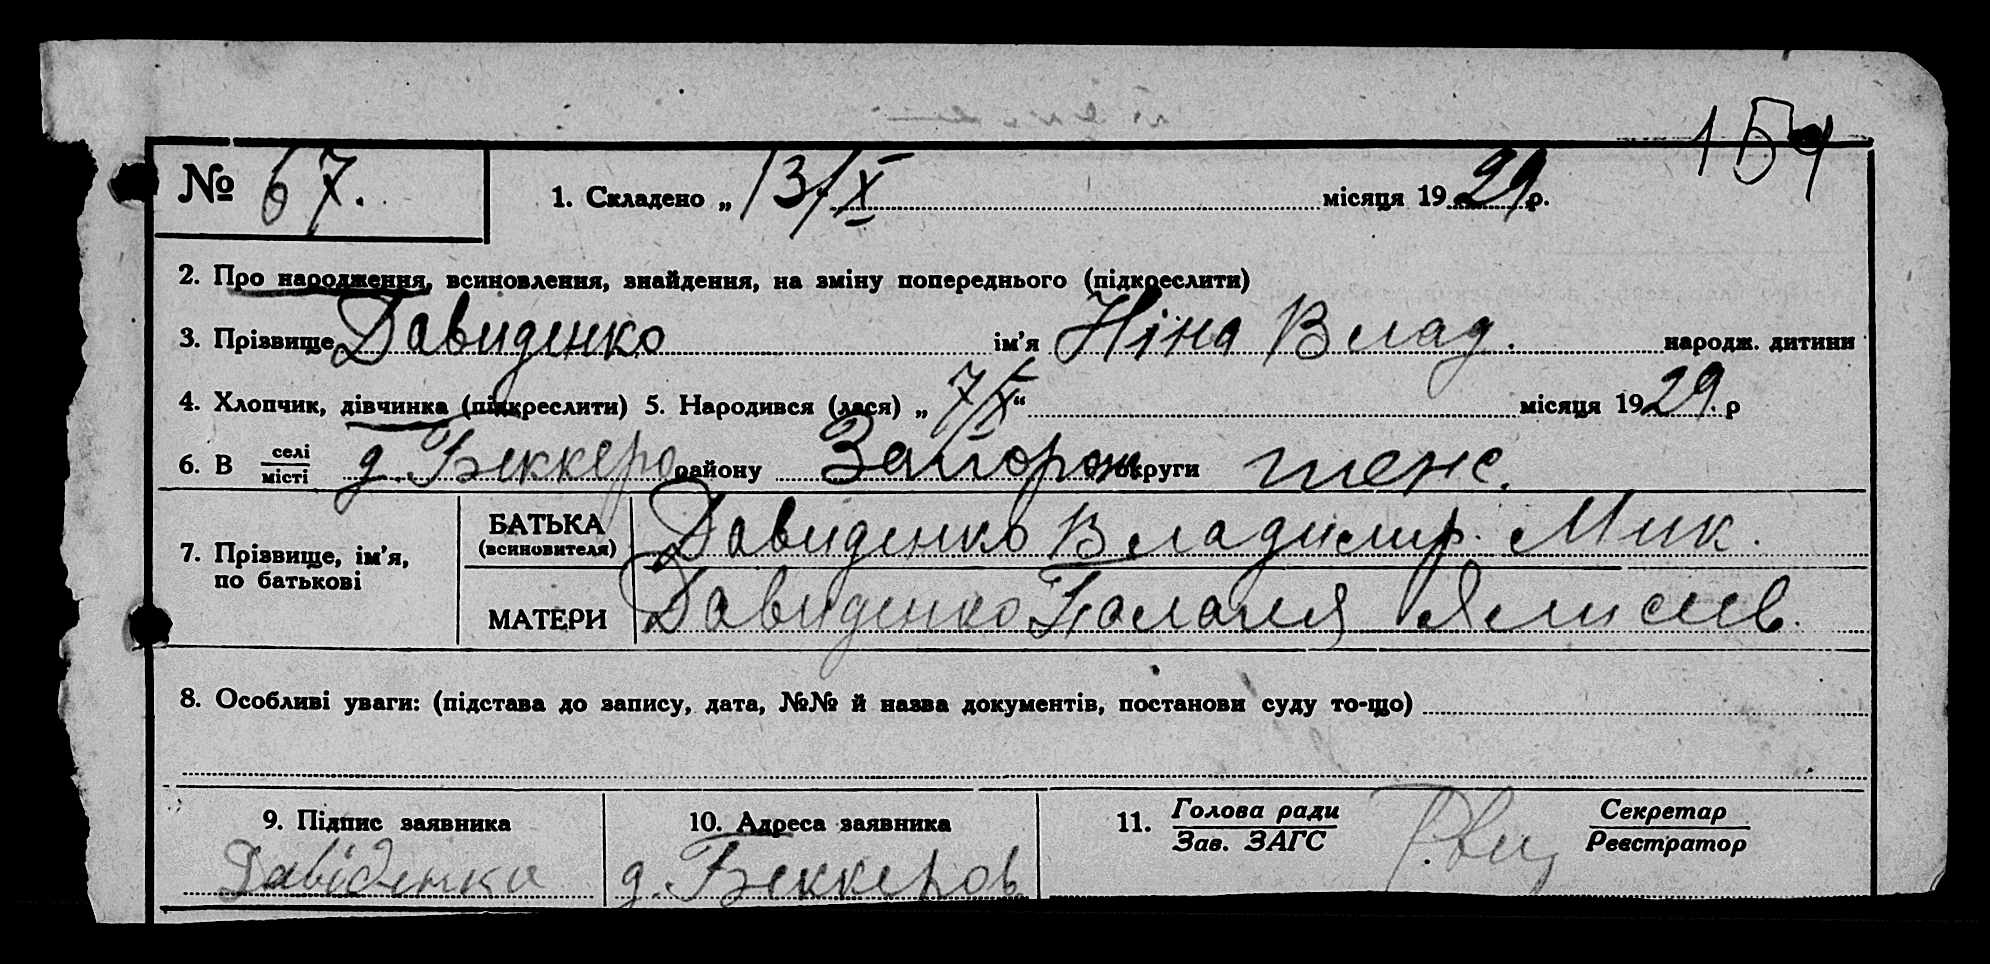 154
№ 67.
1. Складено „ 13/X місяця 1929 р.
2. Про народження, всиновлення, знайдення, на зміну попереднього (підкреслити)
3. Прізвище Давиденко ім'я Ніна Влад. народж. дитини
4. Хлопчик, дівчинка (підкреслити) 5. Народився (лася) „ 7/X “ місяця 1929. р
6. В селі/місті д. Беккеро району Запорож округи тенс.
7. Прізвище, ім'я, по батькові
БАТЬКА (всиновителя) Давиденко Владимир. Мик.
МАТЕРИ Давиденко
8. Особливі уваги: (підстава до запису, дата, №№ й назва документів, постанови суду то-що)
9. Підпис заявника
Давіденко
10. Адреса заявника
д. Беккеров
11. Голова ради/Зав. ЗАГС
Секретар/Реєстратор